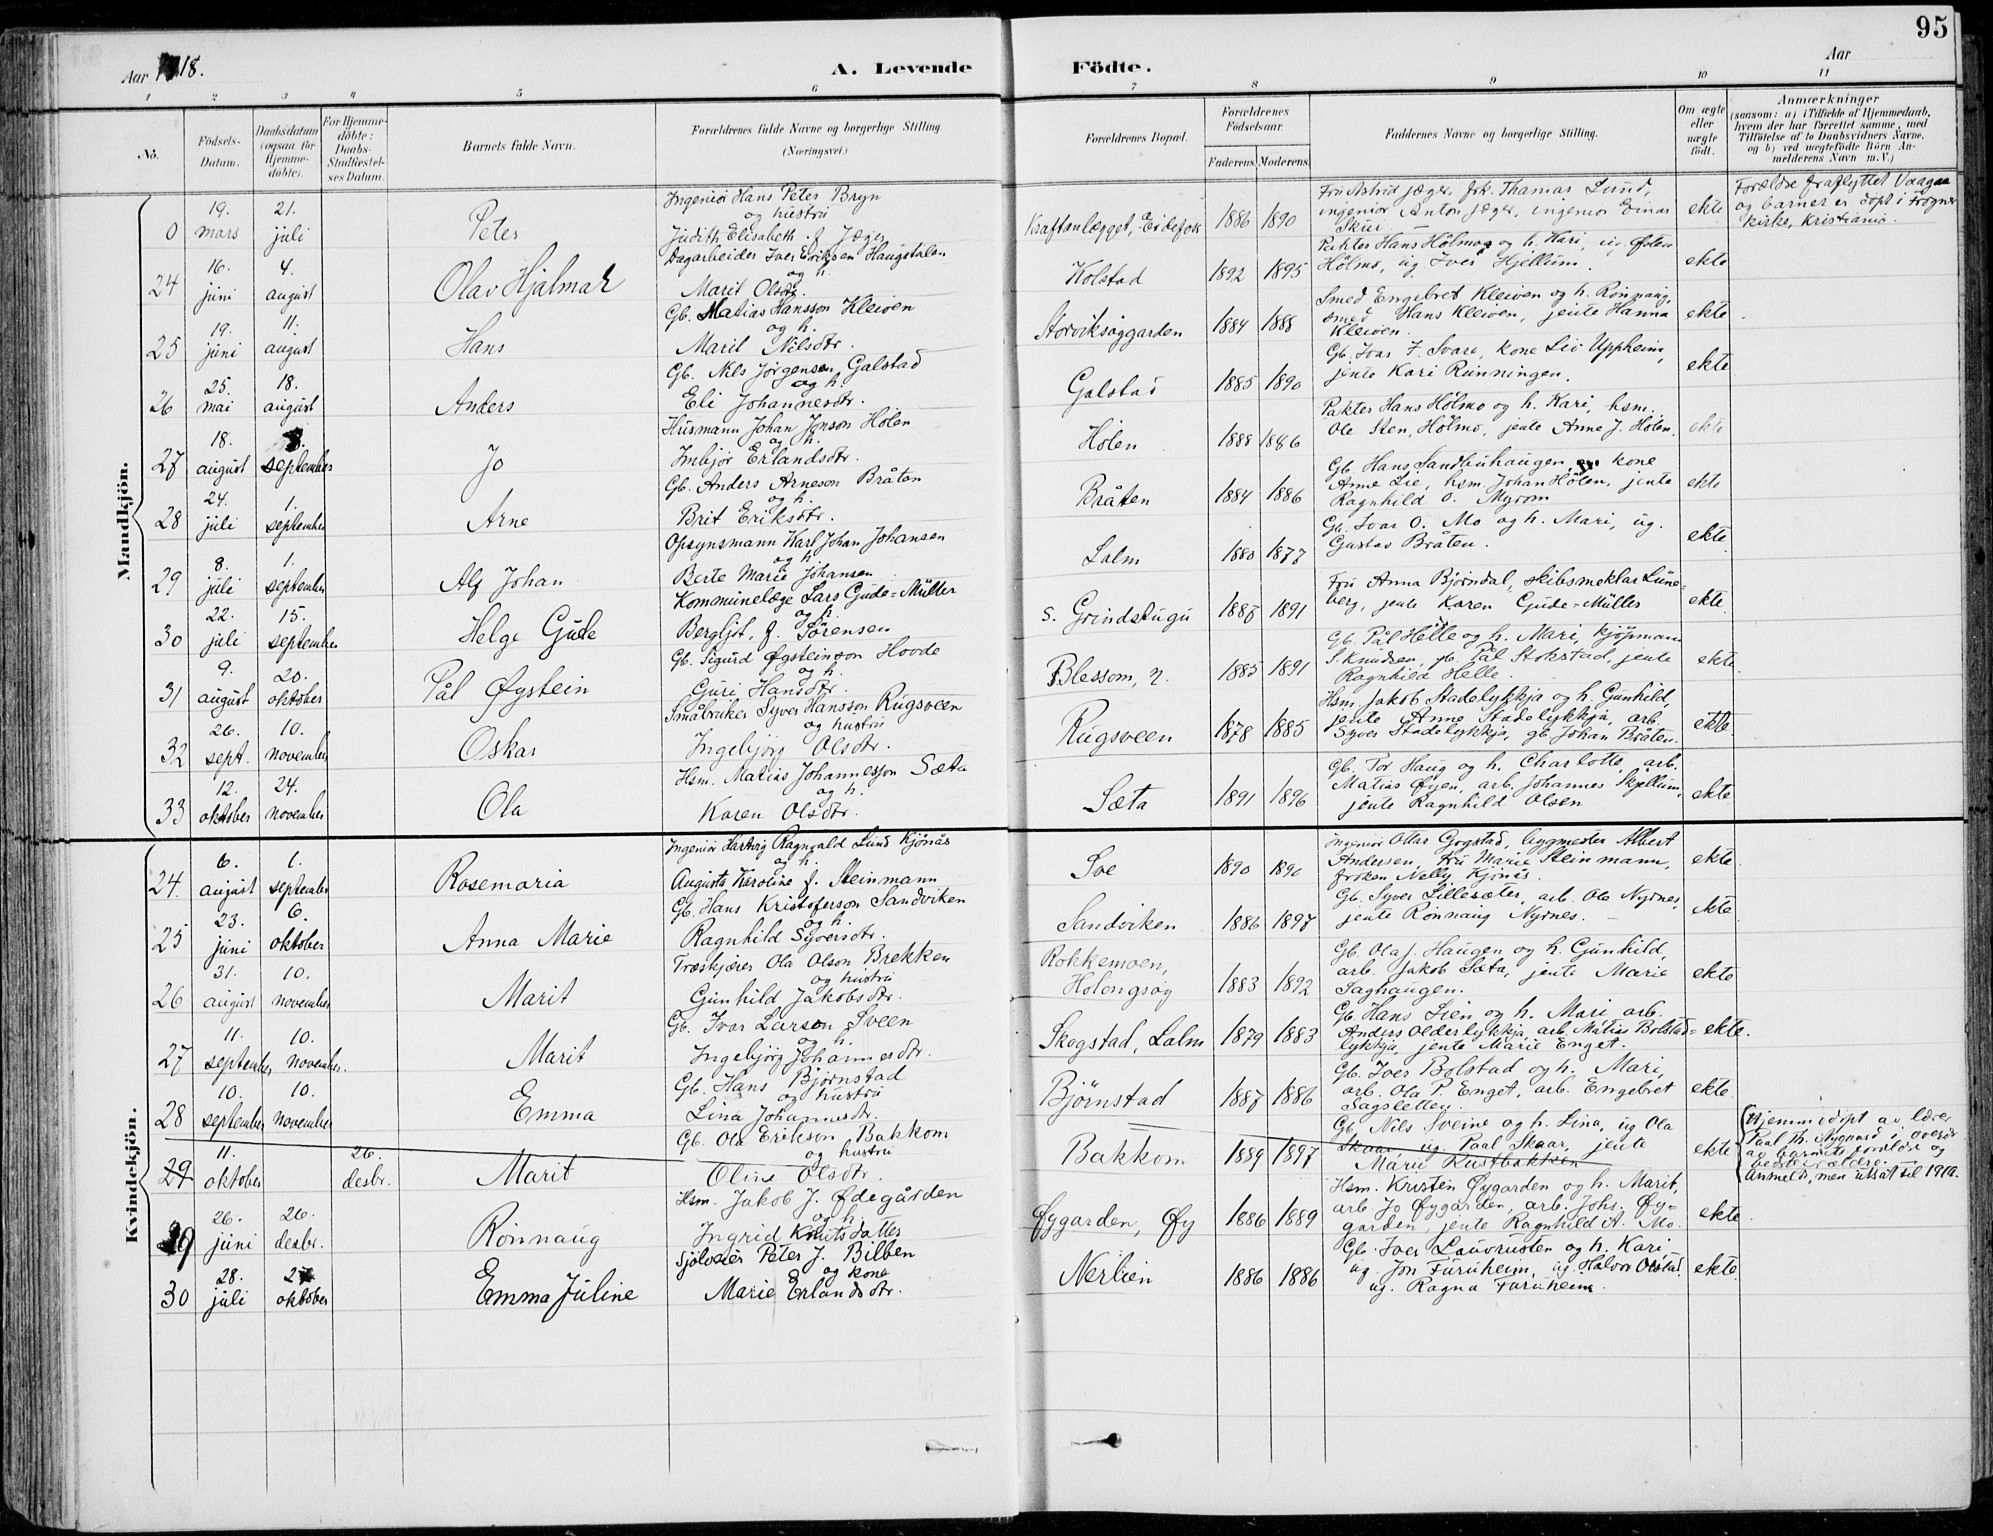 95
Aar 1918.
A. Levende
Födte.
Aar
1 2 3 4 5 6 7 8 9 10 11
No.
Födsels-
Datum.
Daabsdatum
(ogsaa for
Hjemme-
döbte).
For Hjemme-
döbte:
Daabs-
Stadfæstel-
ses Datum.
Barnets fulde Navn.
Forældrenes fulde Navne og borgerlige Stilling.
(Næringsvei.)
Forældrenes Bopæl.
Forældrenes
Födselsaar.
Faderens. Moderens.
Faddernes Navne og borgerlige Stilling.
Om ægte
eller
uægte
födt.
Anmærkninger
(saasom: a) i Tilfælde af Hjemmedaab,
hvem der har forrettet samme, med
Tilföielse af to Daabsvidners Navne,
og b) ved uægtefödte Börn An-
melderens Navn m. V.)
Mandkjön.
0
19. mars
21. juli
Peter
Ingeniør Hans Peter Bryn
og hustru
Judith Elisabeth f. Jæger
Kraftanlægget, Eidefos
1886 1890
Fru Astrid Jæger, frk. Thamar Lund,
ingeniør Anton Jæger, ingeniør Einar
Skui —
ekte
Forældre fraflyttet Vaagaa
og barnet er døpt i Frogner
kirke, Kristiania.
24
16. juni
4. august
Olav Hjalmar
Dagarbeider Iver Eriksen Haugstulen
og h.
Marit Olsdtr.
Kolstad
1892 1895
Pakter Hans Hølmo og h. Kari, ug. Østen
Hølmo, ug Iver Hjellum.
ekte
25
19. juni
11. august
Hans
Gb. Matias Hansson Kleiven
og h.
Marit Nilsdtr.
Storviksøygarden
1884 1888
Smed Engebret Kleiven og h. Rønnaug,
smed Hans Kleiven, jente Hanna
Kleiven.
ekte
26
25. mai
18. august
Anders
Gb. Nils Jørgensen Galstad
og h.
Eli Johannesdtr.
Galstad
1885 1890
Gb. Ivar F. Svare, kone Liv Uppheim,
jente Kari Runningen.
ekte
27
18. august
8. september
Jo
Husmann Johan Jonson Hølen
og h.
Imbjør Erlandsdtr.
Hølen
1888 1886
Pakter Hans Hølmo og h. Kari, hsm.
Ole Sten, Hølmo, jente Anne J. Hølen.
ekte
28
24. juli
1. september
Arne
Gb. Anders Arneson Bråten
og h.
Brit Eriksdtr.
Bråten
1884 1886
Gb. Hans Sandbuhaugen, kone
Anne Lie, hsm. Johan Hølen, jente
Ragnhild O. Myrom
ekte
29
8. juli
1. september
Alf Johan
Opsynsmann Karl Johan Johansen
og h.
Berte Marie Johansen
Lalm
1880 1877
Gb. Ivar O. Mo og h. Mari, ug.
Gustav Bråten.
ekte
30
22. juli
15. september
Helge Gude
Kommunelæge Lars Gude-Müller
og h.
Bergljot, f. Sørensen
S. Grindstugu
1887 1891
Fru Anna Bjørndal, skibsmeklar Lüne-
berg, jente Karen Gude-Müller
ekte
31
9. august
20. oktober
Pål Øystein
Gb. Sigurd Øysteinson Hovde
og h.
Guri Hansdtr.
Blessom, n.
1885 1891
Gb. Pål Helle og h. Mari, kjøpmann
S. Knudsen, gb. Pål Stokstad, jente
Ragnhild Helle.
ekte
32
26. sept.
10. november
Oskar
Småbruker Syver Hansson Rugsveen
og hustru
Ingebjørg Olsdtr.
Rugsveen
1878 1885
Hsm. Jakob Stadelykkja og h. Gunhild,
jente Anne Stadelykkja, arb.
Syver Stadelykkja, gb Johan Bråten.
ekte
33
12. oktober
24. november
Ola
Hsm. Matias Johannesson Sæta
og h.
Karen Olsdtr.
Sæta
1891 1896
Gb. Tor Haug og h. Charlotte, arb.
Matias Øyen, arb. Johannes Skjellum,
jente Ragnhild Olsen
ekte
Kvindekjön.
24.
6. august
1. september
Rosemaria
Ingeniør Hartvig Ragnvald Lund Kjønås
og h.
Augusta Karoline f. Steinmann
Soe
1890 1890
Ingeniør Ottar Gogstad, byggmester Albert
Andersen, fru Marie Steinmann,
frøken Nelly Kjønås.
ekte
25
23. juni
6. oktober
Anna Marie
Gb. Hans Kristoferson Sandviken
og h.
Ragnhild Syversdtr.
Sandviken
1886 1897
Gb. Syver Lillesæter, arb. Ole Nyrnes,
jente Rønnaug Nyrnes. —
ekte
26
31. august
10. november
Marit
Træskjærer Ola Olson Brekken
og hustru
Gunhild Jakobsdtr.
Rokkemoen,
Holongsøy
1883 1892
Gb. Ola J. Haugen og h. Gunhild,
arb. Jakob Sæta, jente Marie
Saghaugen.
ekte
27
11. september
10. november.
Marit
Gb. Ivar Larson Sveen
og h.
Ingebjørg Johannesdtr.
Skogstad, Lalm
1879 1883
Gb Hans Lien og h. Mari arb.
Anders Olderlykkja, arb. Matias Bolstad-
lykkja, jente Marie Enget.
ekte.
28
10. september
10. november
Emma
Gb. Hans Bjørnstad
og hustru
Lina Johannesdtr.
Bjørnstad
1887 1886
Gb. Iver Bolstad og h. Mari,
arb. Ola P. Enget, arb. Engebret
Sagsletten.
ekte
29
11. oktober
26. desbr.
Marit
Gb. Ola Erikson Bakkom
og hustru
Oline Olsdtr.
Bakkom
1889 1897
Gb. Nils Sveine og h. Lina, ug Ola
Skaar, ug Paal Skaar, jente
Marie Kustbakken
ekte
Hjemmedøpt av lærer
Paal Th. Nygaard i overvær
av barnets forældre og
bedsteforældre.
Anmeldt, men utsat til 1919.
29
26. juni
26. desbr.
Rønnaug
Hsm. Jakob J. Ødegården
og h.
Ingrid Knutsdatter
Øygarden, Øy
1886 1889
Hsm. Kristen Øygarden og h. Marit,
arb Jo Øygarden, arb. Johs. Øy-
garden, jente Ragnhild A. Mo.
ekte
30
28. juli
27 oktober
Emma Juline
Sjøleier Peter J. Bilben
og kone
Marie Erlandsdtr.
Nerlien
1886 1886
Gb. Iver Lauvrusten og h. Kari,
ug. Jon Furuheim, ug. Halvor Olstad,
ug. Ragna Furuheim.
ekte